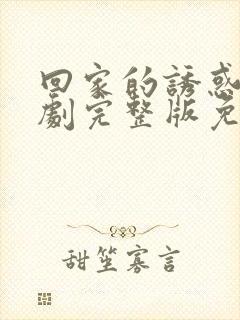 回家的誘惑
劇完整版免
甜笙寡言